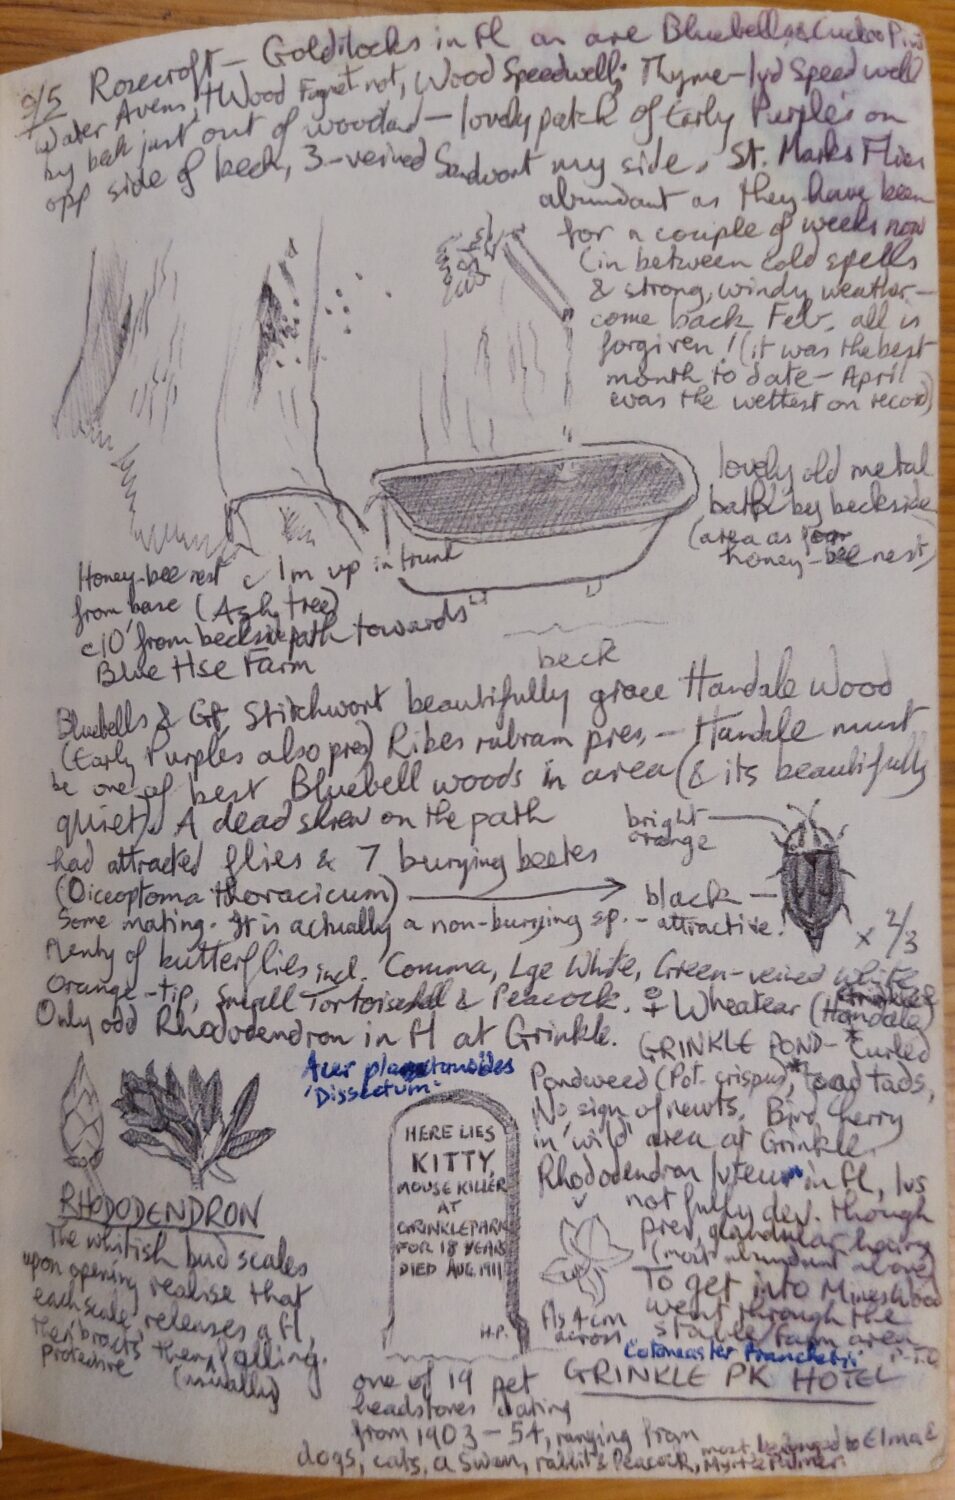 9/5 Rosecroft - Goldilocks in fl as are Bluebells & Cuckoo Pint
Water Avens, Wood Forget not, Wood Speedwell; Thyme-lvd Speedwell
by beck just out of woodland - lovely patch of Early Purples on
opp side of beck, 3-veined Sandwort my side. St. Marks Flies
abundant as they have been
for a couple of weeks now
(in between cold spells
& strong, windy weather -
come back Feb. all is
forgiven! (it was the best
month to date - April
was the wettest on record)
lovely old metal
bath by beckside
(area as for
honey-bee nest)
Honey-bee nest c 1m up in trunk
from base (Ash tree)
c10' from beckside path towards
Blue Hse Farm
beck
Bluebells & Gt. Stitchwort beautifully grace Handale Wood
(Early Purples also pres) Ribes rubrum pres. - Handale must
be one of best Bluebell woods in area (& its beautifully
quiet). A dead shrew on the path
had attracted flies & 7 burying beetles
(Oiceoptoma thoracicum)
Some mating. It is actually a non-burying sp. - attractive.
bright
orange
black
x 2/3
Plenty of butterflies incl. Comma, Lge White, Green-veined White,
Orange-tip, Small Tortoiseshell & Peacock. ♀ Wheatear (Handale)
Only odd Rhododendron in fl at Grinkle.
GRINKLE POND - Curled
Pondweed (Pot. crispus), toad tads,
No sign of newts. Bird Cherry
in 'wild' area at Grinkle.
Rhododendron luteum in fl, lvs
not fully dev. though
pres, glandular hairs
(most abundant above)
To get into Mines Wood
went through the
stable/farm area
P.T.O
Acer
'Dissectum'
HERE LIES
KITTY,
MOUSE KILLER
AT
GRINKLE PARK
FOR 18 YEARS
DIED AUG. 1911
H.P.
fls 4cm
across
Cotoneaster Franchetii
GRINKLE PK HOTEL
RHODODENDRON
The whitish bud scales
upon opening realise that
each scale releases a fl,
the 'bracts' then falling.
protective (usually)
one of 19 pet
headstones dating
from 1903 - 54, ranging from
dogs, cats, a Swan, rabbit & Peacock, most belonged to Elma &
Palmer.